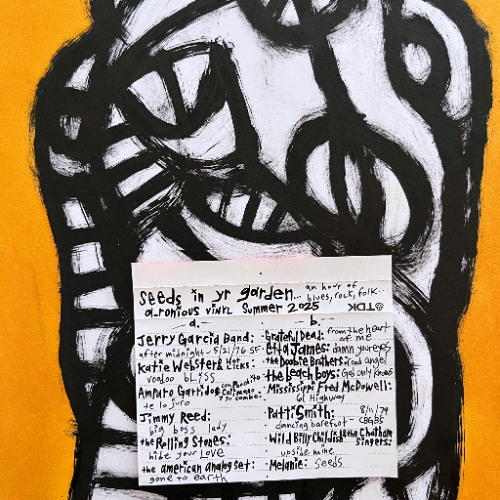 seeds in yr garden... an hour of
blues, rock, folk...
a-rohious vinyl Summer 2025
TDK
a.
Jerry Garcia Band:
after midnight - 5/21/76 SF
Katie Webster & Licks:
voodoo bliss
Amparo Garrido
y su combo:
te lo juro
Jimmy Reed:
big boss lady
the Rolling Stones:
hide your Love
the american analog set:
gone to earth
b.
Grateful Dead: from the heart
of me
Etta James: damn your eyes
the Doobie Brothers: road angel
the Beach boys: God only knows
Mississippi Fred McDowell:
61 Highway
Patti Smith: 8/11/79
dancing barefoot - CBGBS
Wild Billy Childish & the Chatham
singers:
upside mine
Melanie: Seeds